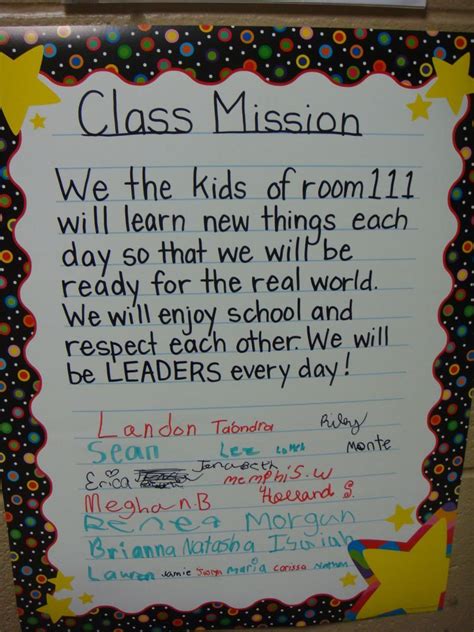 Class Mission
We the kids of room 111
will learn new things each
day so that we will be
ready for the real world.
We will enjoy school and
respect each other. We will
be LEADERS every day!
Landon Tabndra Riley
Sean Monte
Erica Memphis.W
Meghan.B Holland S.
Renea Morgan
Brianna Natasha Isaiah
Lauren Jamie Maria Carissa Nathan